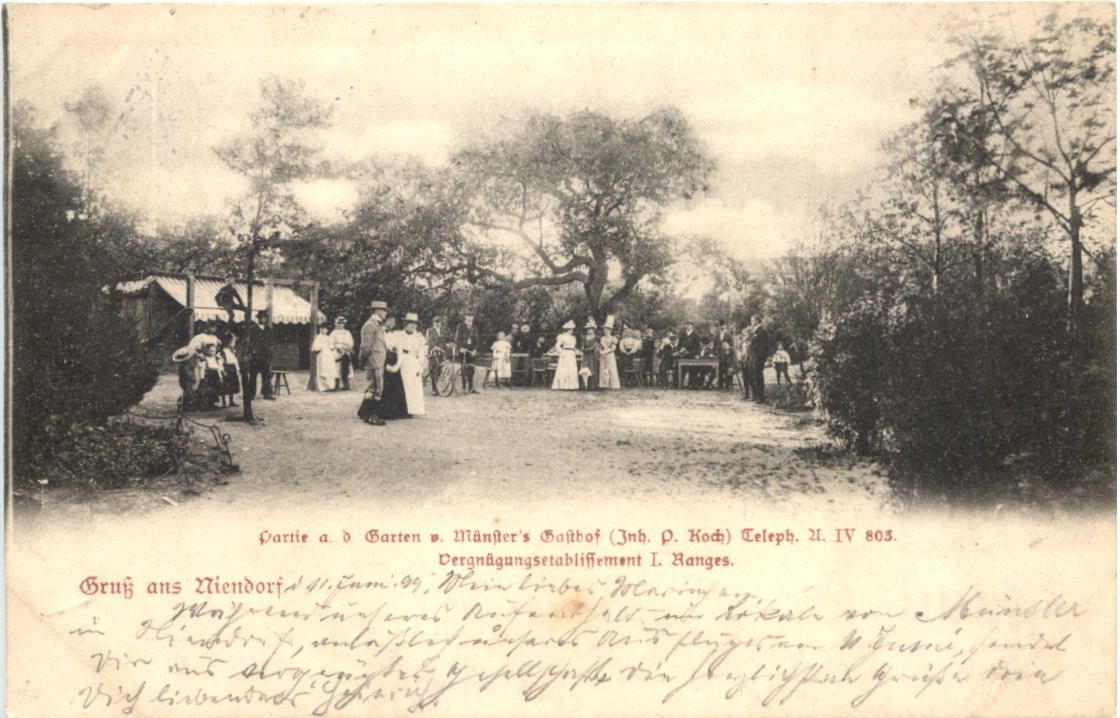 Partie a. d Garten v. Münster's Gasthof (Inh. P. Koch) Teleph. A. IV 803.
Vergnügungsetablissement I. Ranges.
Gruß ans Niendorf d 11. Juni 99. Mein liebes Mariechen,
Während unseres Aufenthalts im Lokale von Münster
in Niendorf, anläßlich unseres Ausfluges am 11 Juni, sendet
Dir aus vergnügter Gesellschaft die herzlichsten Grüße Dein
Dich liebender Heinrich